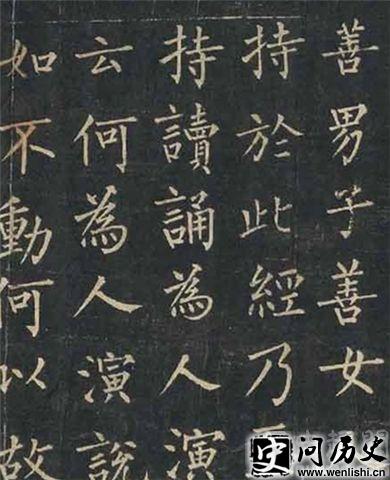 善男子善女
持於此經乃
持讀誦為人演
云何為人演說
如不動何以故
史问历史
www.wenlishi.cn